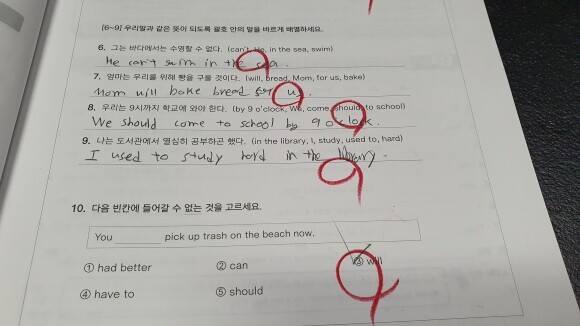 [6~9] 우리말과 같은 뜻이 되도록 괄호 안의 말을 바르게 배열하세요.
6. 그는 바다에서는 수영할 수 없다. (can't, He, in the sea, swim)
He can't swim in the sea.
7. 엄마는 우리를 위해 빵을 구울 것이다. (will, bread, Mom, for us, bake)
Mom will bake bread for us.
8. 우리는 9시까지 학교에 와야 한다. (by 9 o'clock, We, come, should, to school)
We should come to school by 9 o'clock.
9. 나는 도서관에서 열심히 공부하곤 했다. (in the library, I, study, used to, hard)
I used to study hard in the library.
10. 다음 빈칸에 들어갈 수 없는 것을 고르세요.
You ______ pick up trash on the beach now.
① had better ② can ③ will
④ have to ⑤ should